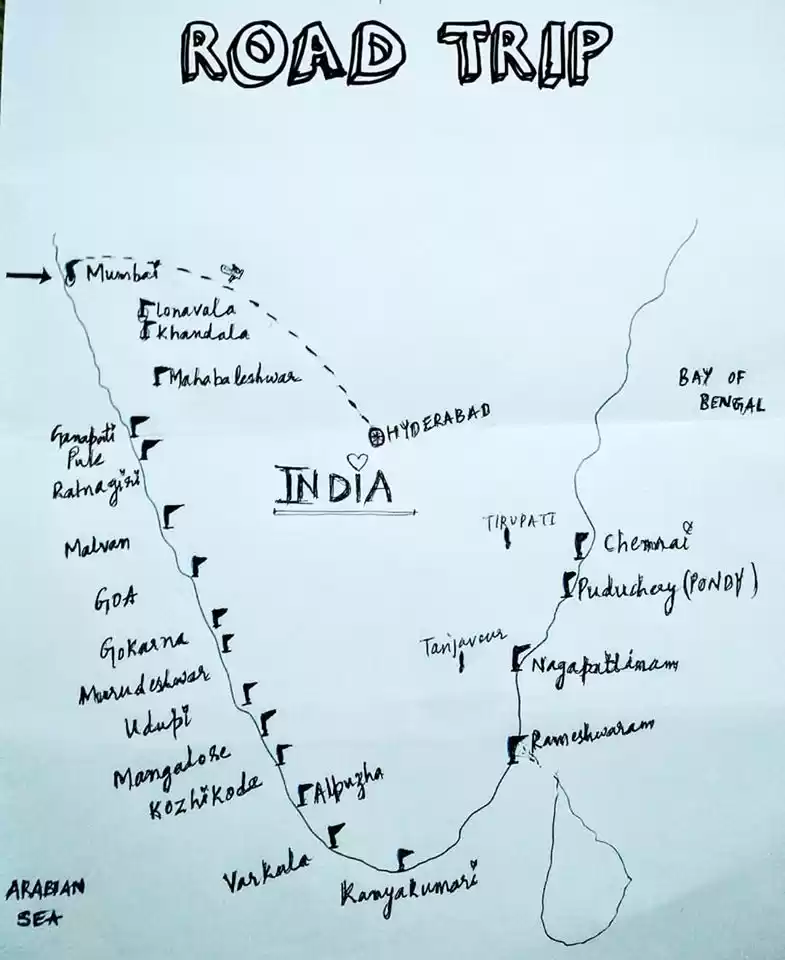 ROAD TRIP
Mumbai
Lonavala
Khandala
Mahabaleshwar
HYDERABAD
BAY OF
BENGAL
Ganapati
Pule
Ratnagiri
INDIA
Malvan
TIRUPATI
Chennai
Puduchery (PONDY)
GOA
Gokarna
Tanjavour
Nagapattinam
Murudeshwar
Udupi
Rameshwaram
Mangalore
Kozhikode
Alpuzha
Varkala
Kanyakumari
ARABIAN
SEA